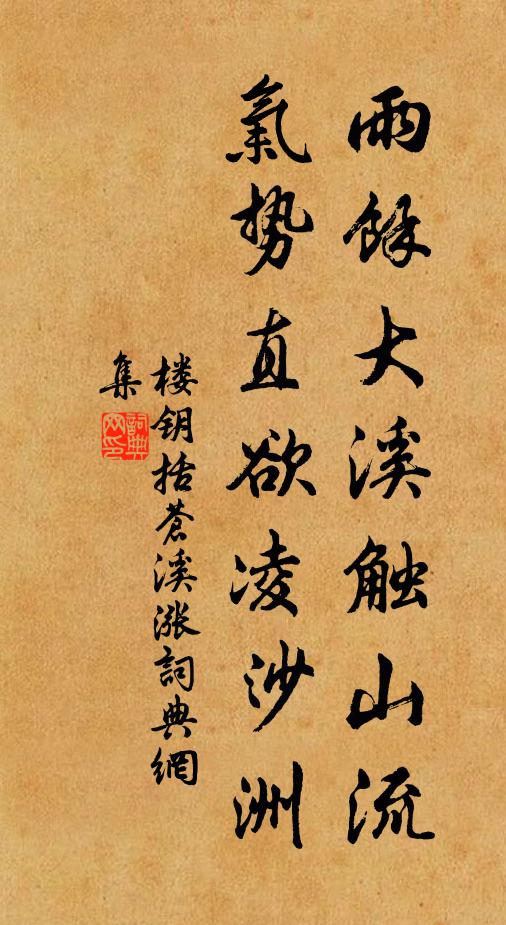 雨餘大溪触山流
氣势直欲凌沙洲
楼钥括蒼溪涨詞典網
集
詞典网印